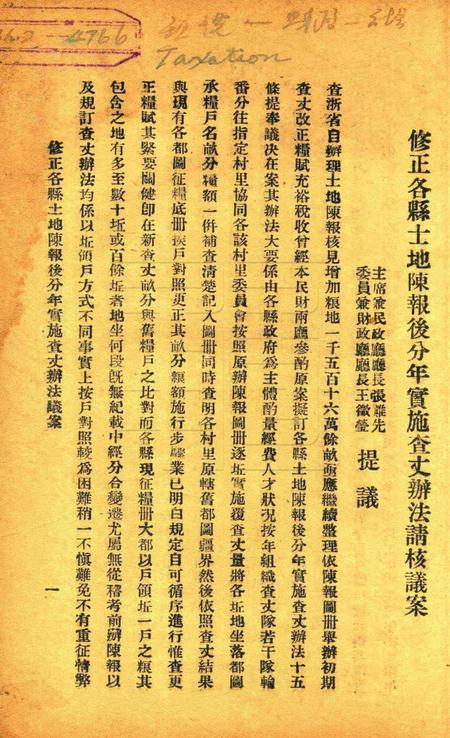 362-4766
Taxation
修正各縣土地陳報後分年實施查丈辦法請核議案
主席兼民政廳廳長張難先
委員兼財政廳廳長王徵瑩
提議
查浙省自辦理土地陳報核見增加粮地一千五百十六萬餘畝亟應繼續整理依陳報圖冊舉辦初期
查丈改正糧賦充裕稅收曾經本民財兩廳參酌原案擬訂各縣土地陳報後分年實施查丈辦法十五
條提奉議決在案其辦法大要係由各縣政府爲主體酌量經費人才狀况按年組織查丈隊若干隊輪
番分往指定村里協同各該村里委員會按照原辦陳報圖冊逐坵實施覆查丈量將各坵地坐落都圖
承糧戶名畝分糧額一併補查清楚記入圖冊同時查明各村里原轄舊都圖疆界然後依照查丈結果
與現有各都圖征糧底冊挨戶對照更正其畝分糧額施行步驟業已明白規定自可循序進行惟查更
正糧賦其緊要關鍵即在新查丈畝分與舊糧戶之比對而各縣現征糧冊大都以戶領坵一戶之糧其
包含之地有多至數十坵或百餘坵者地坐何段旣無紀載中經分合變遷尤屬無從稽考前辦陳報以
及規訂查丈辦法均係以坵領戶方式不同事實上按戶對照較爲困難稍一不愼難免不有重征情弊
修正各縣土地陳報後分年實施查丈辦法議案
一